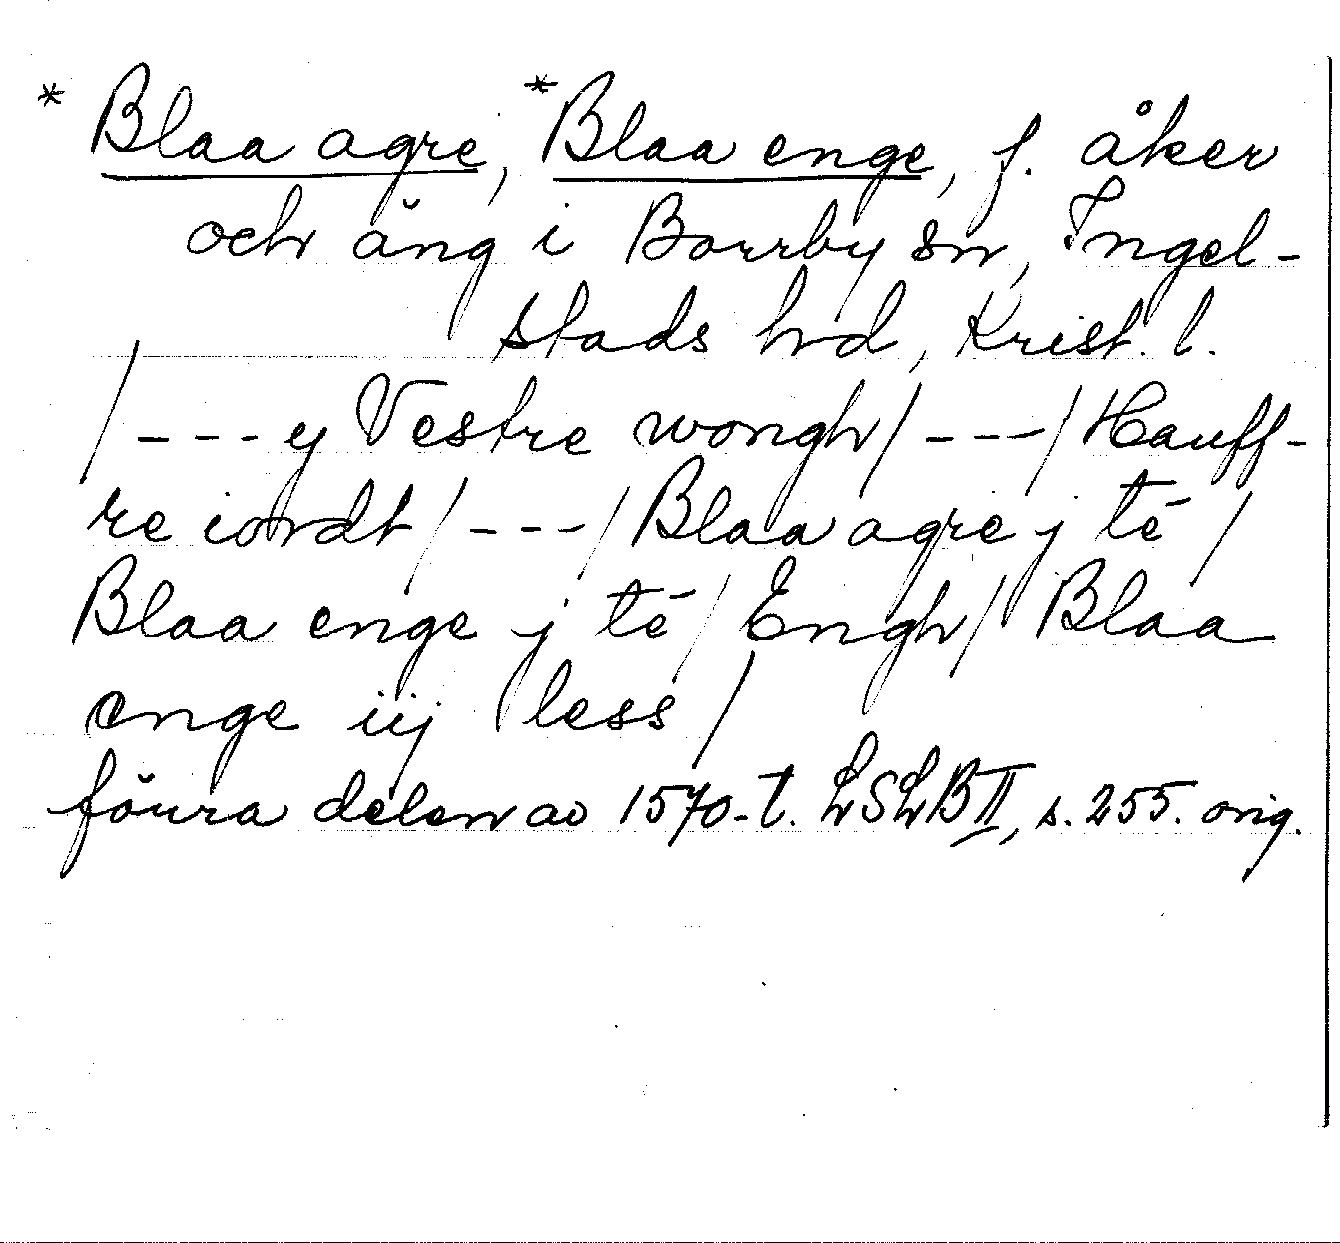 * Blaa agre, * Blaa enge, f. åker
och äng i Borrby sn, Ingel-
stads hd, Krist. l.
/ - - - y Vestre wongh / - - - / Hauff-
re iordt / - - - / Blaa agre j té /
Blaa enge j té / Engh / Blaa
enge iij less /
förra delen av 1570-t. LSLB II, s. 255. orig.